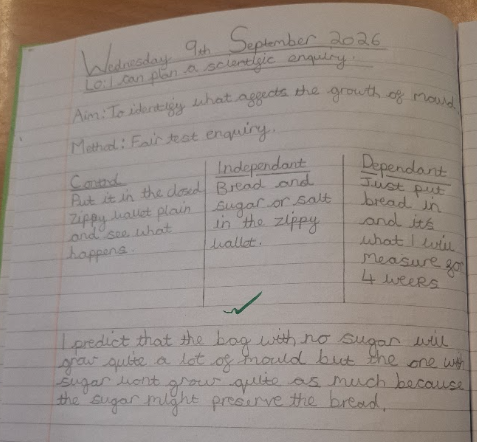 Wednesday 9th September 2026
Lo: I can plan a scientific enquiry.
Aim: To identify what affects the growth of mould
Method: Fair test enquiry.
Control
Put it in the closed
zippy wallet plain
and see what
happens.
Independant
Bread and
sugar or salt
in the zippy
wallet.
Dependant
Just put
bread in
and its
what I will
measure for
4 weeks
I predict that the bag with no sugar will
grow quite a lot of mould but the one with
sugar wont grow quite as much because
the sugar might preserve the bread.